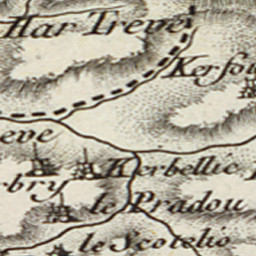 Har Treve
Kersou
eve
Kerbellic
bry
le Pradou
le Scotelio